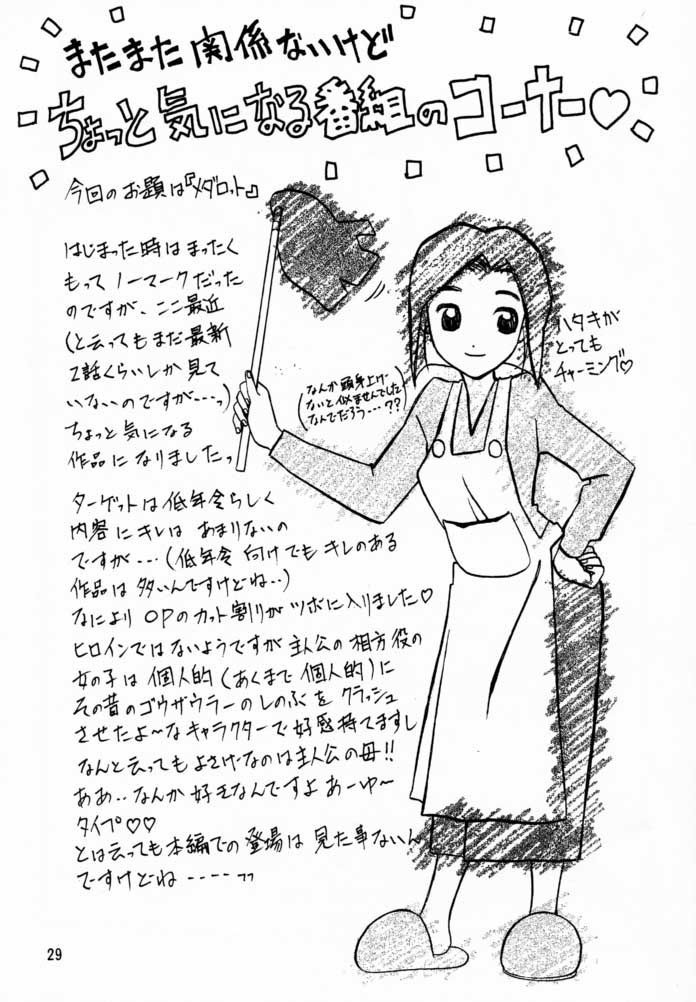 またまた関係ないけど
ちょっと気になる番組のコーナー♡
今回のお題は『メダロット』
はじまった時はまったく
もってノーマークだった
のですが、ここ最近
(と云ってもまだ最新
2話くらいしか見て
いないのですが---っ)
ちょっと気になる
作品になりましたっ
ハタキが
とっても
チャーミング♡
(なんか頭身上げ
ないと似ませんでした
なんでだろう…??)
ターゲットは低年令らしく
内容にキレはあまりないの
ですが---(低年令向けでもキレのある
作品は多いんですけどね..)
なによりOPのカット割りがツボに入りました♡
ヒロインではないようですが主人公の相方役の
女の子は個人的(あくまで個人的)に
その昔のゴウザウラーのしのぶをクラッシュ
させたよ〜なキャラクターで好感持てますし
なんと云ってもよさげなのは主人公の母!!
ああ..なんか好きなんですよあーゆ〜
タイプ♡♡
とは云っても本編での登場は見た事ないん
ですけどね----
29